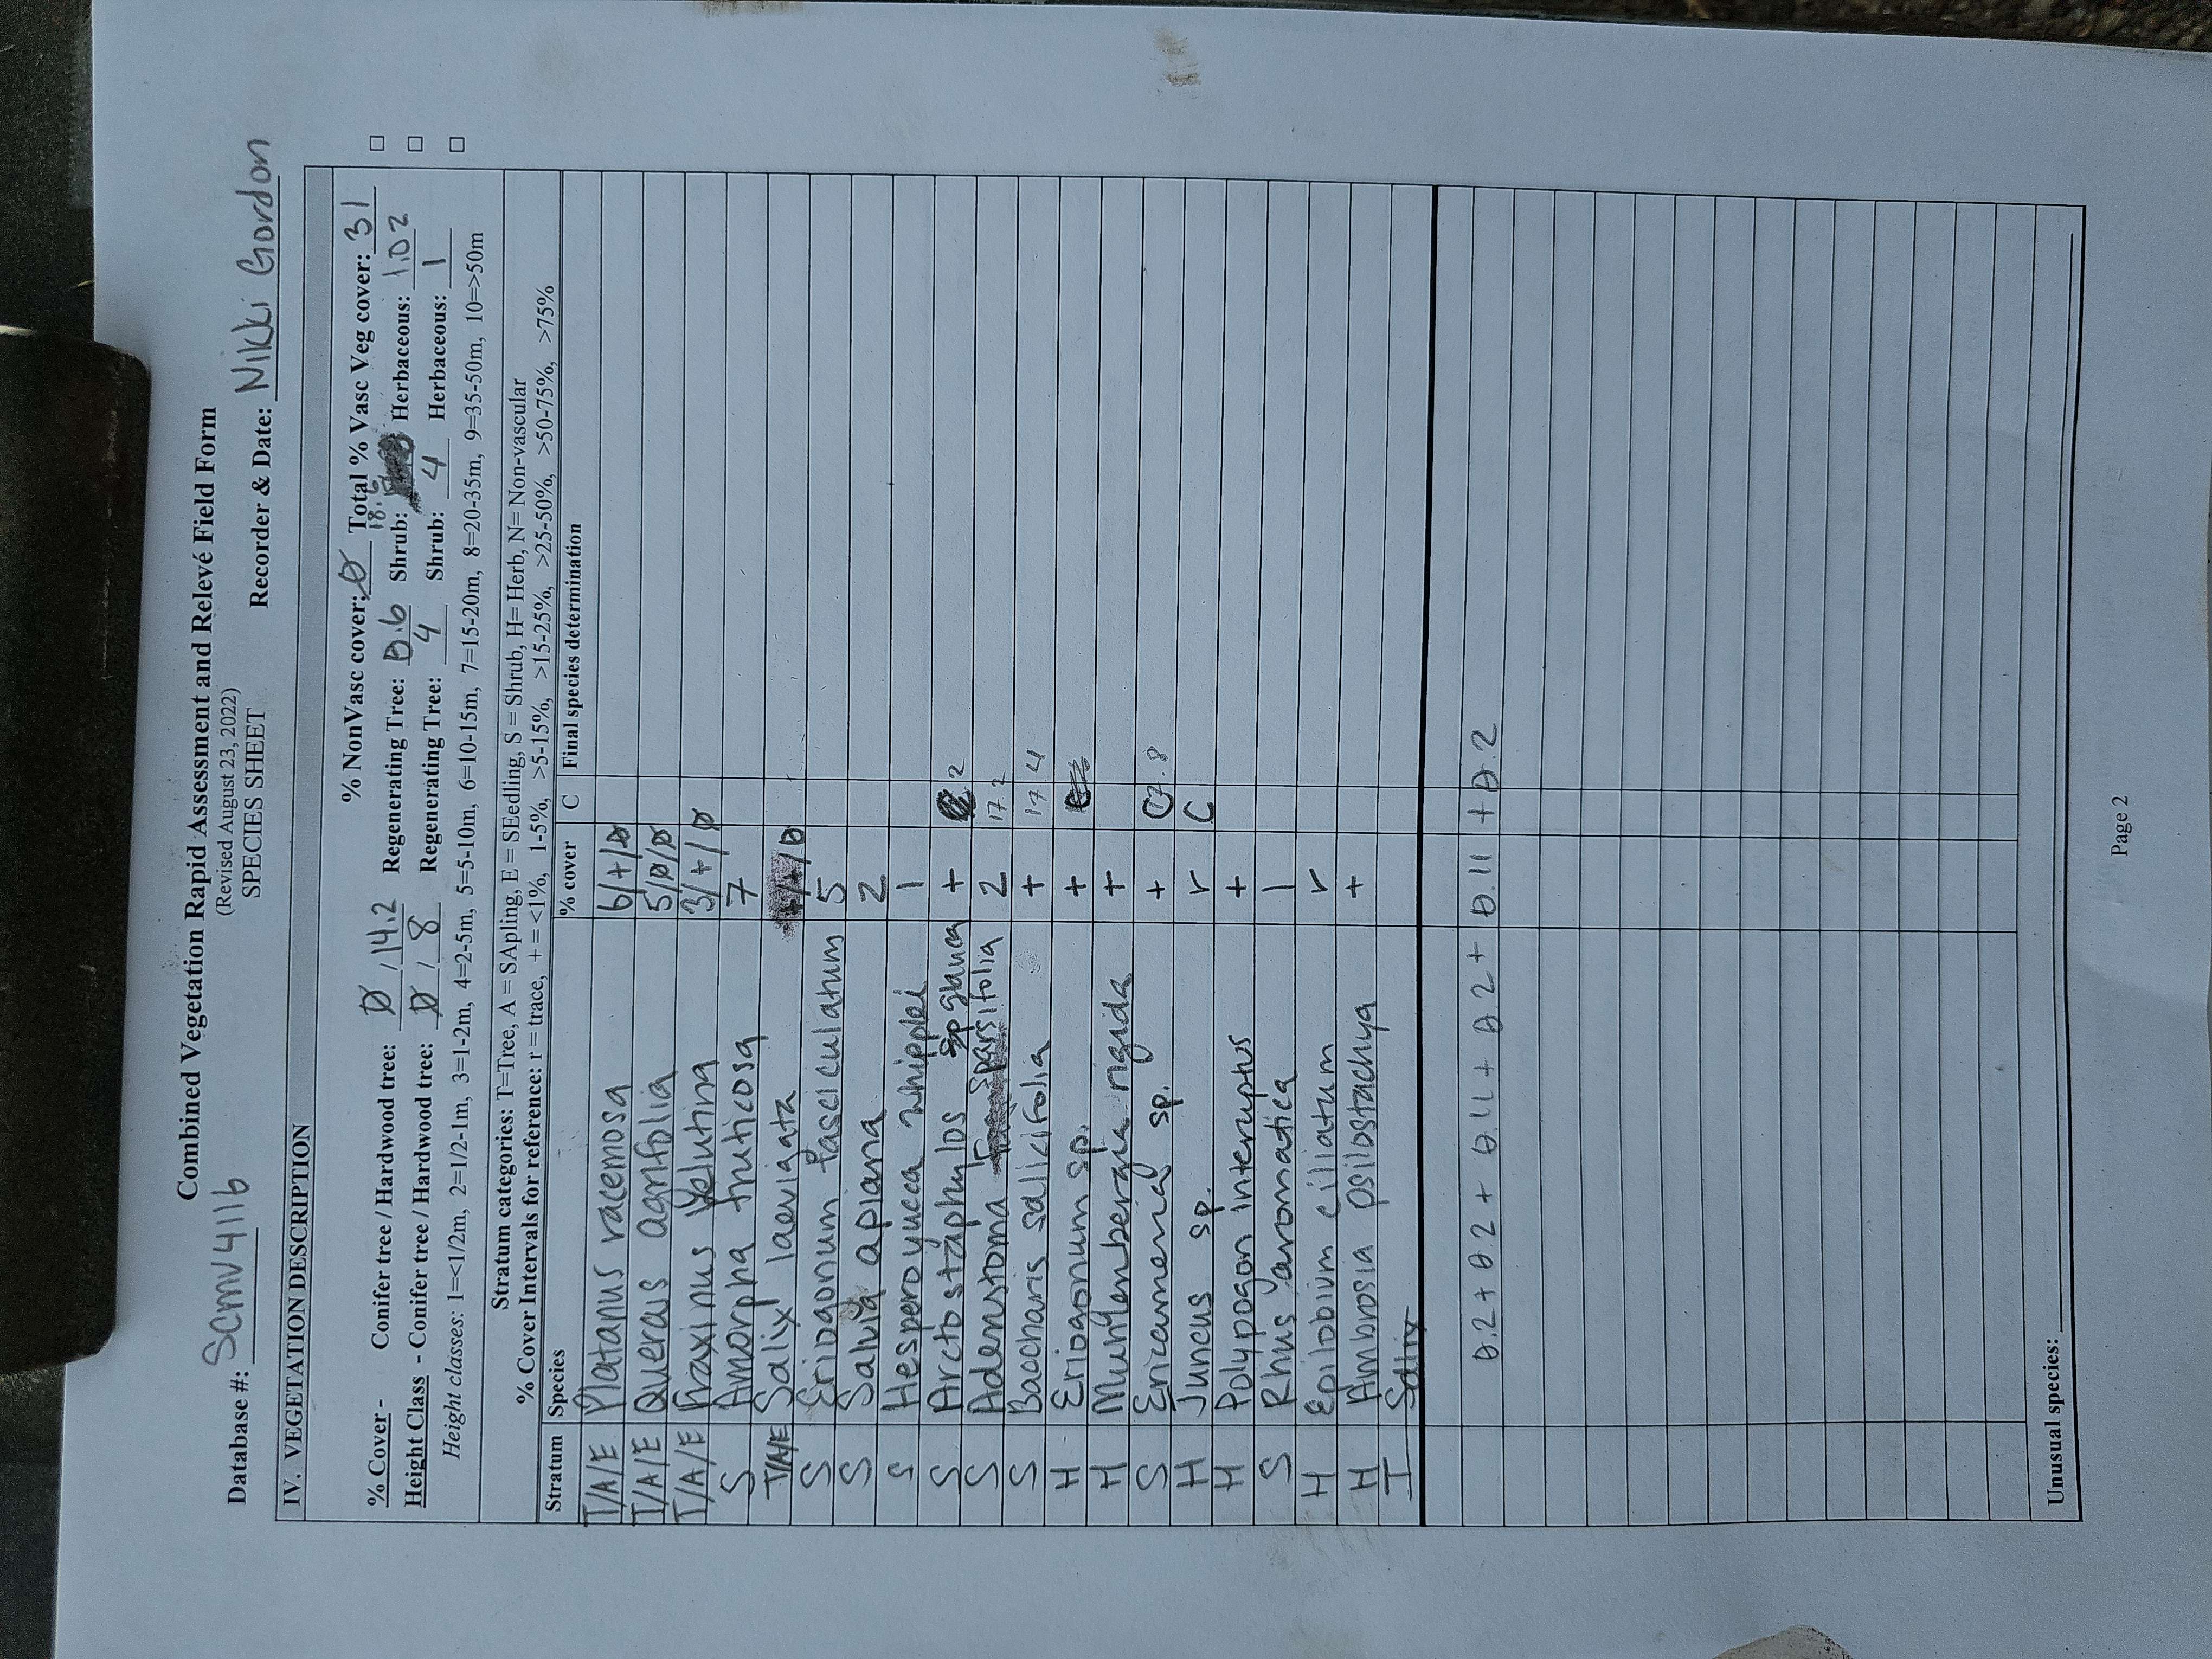 Combined Vegetation Rapid Assessment and Relevé Field Form
(Revised August 23, 2022)
SPECIES SHEET
Database #: Scmv4116 Recorder & Date: Nikki Gordon
IV. VEGETATION DESCRIPTION
% NonVasc cover: Ø Total % Vasc Veg cover: 31
% Cover - Conifer tree / Hardwood tree: Ø / 14.2 Regenerating Tree: Ø.6 Shrub: 18.6 Herbaceous: 1.02 □
Height Class - Conifer tree / Hardwood tree: Ø / 8 Regenerating Tree: 4 Shrub: 4 Herbaceous: 1 □
Height classes: 1=<1/2m, 2=1/2-1m, 3=1-2m, 4=2-5m, 5=5-10m, 6=10-15m, 7=15-20m, 8=20-35m, 9=35-50m, 10=>50m
Stratum categories: T=Tree, A = SApling, E = SEedling, S = Shrub, H= Herb, N= Non-vascular
% Cover Intervals for reference: r = trace, + = <1%, 1-5%, >5-15%, >15-25%, >25-50%, >50-75%, >75%
Stratum Species % cover C Final species determination
T/A/E Platanus racemosa 6/+/Ø
T/A/E Quercus agrifolia 5/Ø/Ø
T/A/E Fraxinus velutina 3/+/Ø
S Amorpha fruticosa 7
T/A/E Salix laevigata +/+/Ø
S Eriogonum fasciculatum 5
S Salvia apiana 2
S Hesperoyucca whipplei 1
S Arctostaphylos glauca + 2
S Adenostoma sparsifolia 2 17 2
S Baccharis salicifolia + 17 4
H Eriogonum sp. +
H Muhlenbergia rigida +
S Ericameria sp. + 17.8
H Juncus sp. r C
H Polypogon interuptus +
S Rhus aromatica 1
H Epilobium ciliatum r
H Ambrosia psilostachya +
T Salix
Ø.2 + Ø.2 + Ø.11 + Ø.2 + Ø.11 + Ø.2
Unusual species:
Page 2